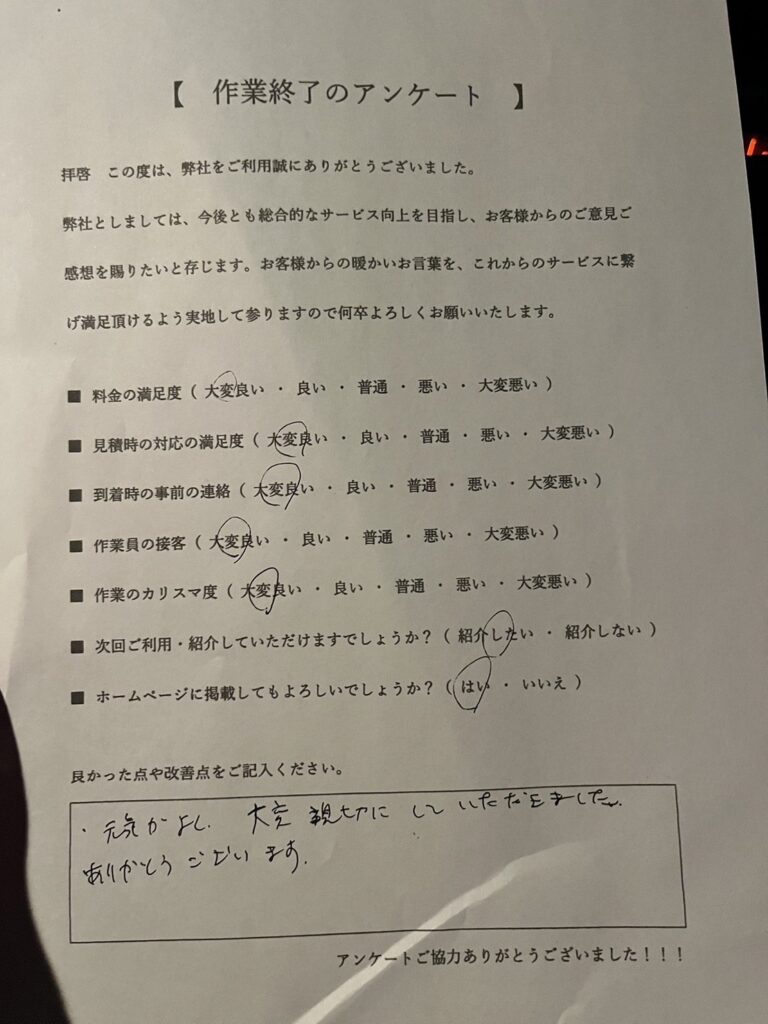 【 作業終了のアンケート 】
拝啓 この度は、弊社をご利用誠にありがとうございました。
弊社としましては、今後とも総合的なサービス向上を目指し、お客様からのご意見ご
感想を賜りたいと存じます。お客様からの暖かいお言葉を、これからのサービスに繋
げ満足頂けるよう実地して参りますので何卒よろしくお願いいたします。
■ 料金の満足度（ 大変良い ・ 良い ・ 普通 ・ 悪い ・ 大変悪い ）
■ 見積時の対応の満足度（ 大変良い ・ 良い ・ 普通 ・ 悪い ・ 大変悪い ）
■ 到着時の事前の連絡（ 大変良い ・ 良い ・ 普通 ・ 悪い ・ 大変悪い ）
■ 作業員の接客（ 大変良い ・ 良い ・ 普通 ・ 悪い ・ 大変悪い ）
■ 作業のカリスマ度（ 大変良い ・ 良い ・ 普通 ・ 悪い ・ 大変悪い ）
■ 次回ご利用・紹介していただけますでしょうか？（ 紹介したい ・ 紹介しない ）
■ ホームページに掲載してもよろしいでしょうか？（ はい ・ いいえ ）
良かった点や改善点をご記入ください。
・元気がよく、大変親切にしていただきました。
ありがとうございます。
アンケートご協力ありがとうございました！！！